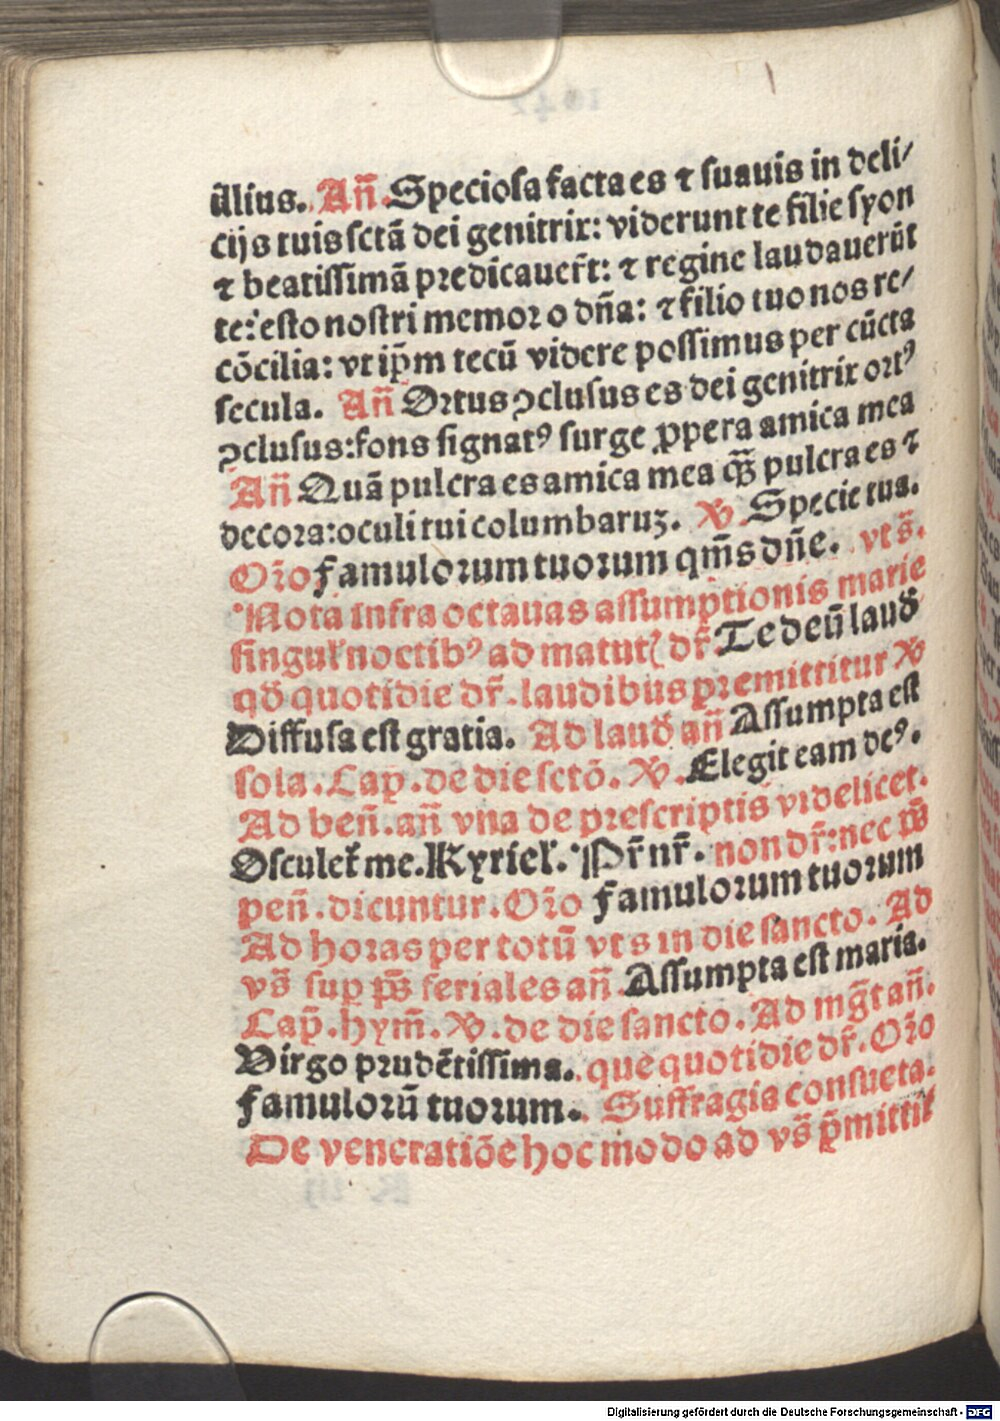 illius. An̄. Speciosa facta es ⁊ suauis in deli/
cijs tuis sctā dei genitrix: viderunt te filie syon
⁊ beatissimā predicauer̄t: ⁊ regine laudauerūt
te: esto nostri memor o dn̄a: ⁊ filio tuo nos re/
cōcilia: vt ip̄m tecū videre possimus per cūcta
secula. An̄ Ortus ꝯclusus es dei genitrix ortꝰ
ꝯclusus: fons signatꝰ surge ꝓpera amica mea
An̄ Quā pulcra es amica mea q̄ꝫ pulcra es ⁊
decora: oculi tui columbaruꝫ. ℣. Specie tua.
Or̄o Famulorum tuorum qm̄s dn̄e. vt s̄.
Nota infra octauas assumptionis marie
singul̄ noctibꝰ ad matut̄ dr̄ Te deū laud̄
qd̄ quotidie dr̄. laudibus premittitur ℣
Diffusa est gratia. Ad laud̄ an̄ Assumpta est
sola. Cap̄. de die sctō. ℣. Elegit eam deꝰ.
Ad ben̄. an̄ vna de prescriptis videlicet.
Osculet̄ me. Kyriel̄. Pr̄ nr̄. non dr̄: nec p̄s
pen̄. dicuntur. Or̄o Famulorum tuorum
Ad horas per totū vt s in die sancto. Ad
vs̄ sup p̄s feriales an̄ Assumpta est maria.
Cap̄. hym̄. ℣. de die sancto. Ad mḡt an̄.
Virgo prudētissima. que quotidie dr̄. Or̄o
Famulorū tuorum. Suffragia consueta.
De veneratiōe hoc modo ad vs̄ p̄mittit̄
Digitalisierung gefördert durch die Deutsche Forschungsgemeinschaft - DFG